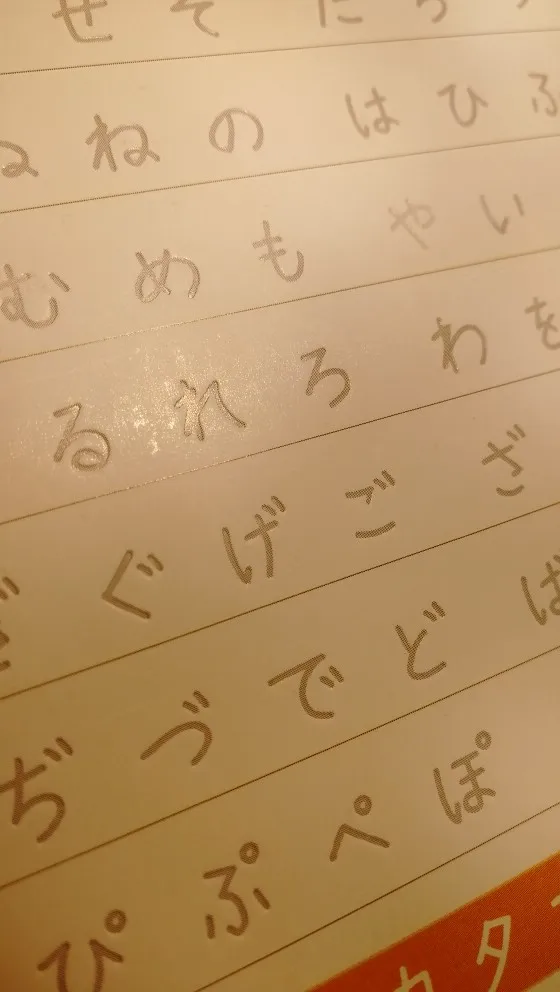 せ そ た ち
ね の は ひ ふ
む め も や い
る れ ろ わ を
ぐ げ ご ざ
ぢ づ で ど ば
ぴ ぷ ぺ ぽ
カタ